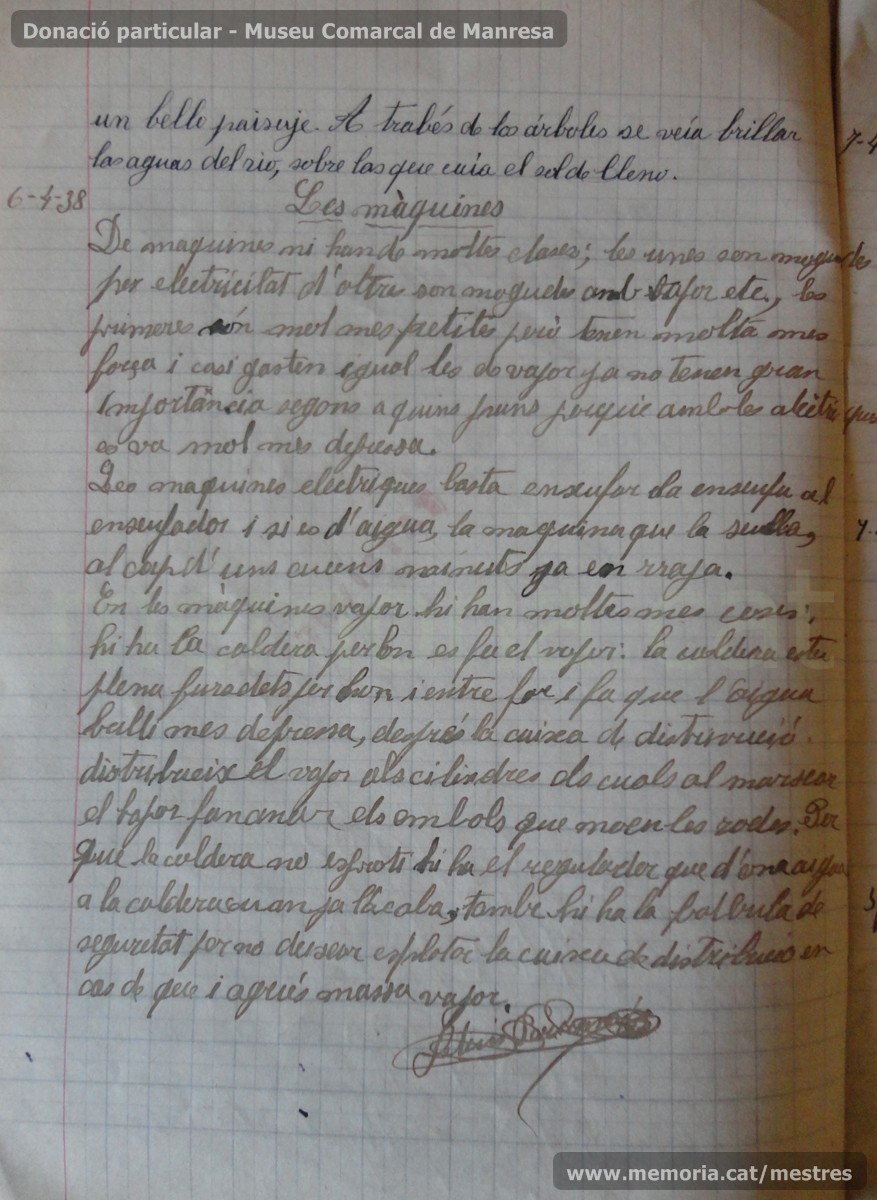 Donació particular - Museu Comarcal de Manresa
un bello paisaje. A trabés de los árboles se veía brillar
las aguas del rio, sobre las que caia el sol de lleno.
6-4-38
Les màquines
De maquines ni han de moltes clases; les unes son mogudes
per electricitat d'oltres son mogudes amb vapor etc., les
primeres són mol mes petites però tenen molta mes
força i casi gasten igual les de vapor ja no tenen gran
importància segons a quins puns porque amb les alectriques
es va mol mes depressa.
Les maquines electriques basta enxufar la enxufa al
enxufador i si es d'aigua, la maquina que la sulla,
al cap d' uns cuens minuts ja en rraja.
En les màquines vapor hi han moltes mes coses;
hi ha la caldera per on es fa el vapor: la caldera esta
plena furadets per hon i entre for i fa que l'aigua
balli mes depressa, després la caixa de distrivució
distribueix el vapor als cilindres els cuals al marxar
el bapor fan anar els embols que moen les rodes. Per
que la caldera no esproti hi ha el regulador que d'ona aigua
a la caldera cuan ja l'acaba, tambe hi ha la balbula de
seguretat per no deixar esplotar la caixa de distribucio en
cas de que i agués massa vapor.
7-4
www.memoria.cat/mestres